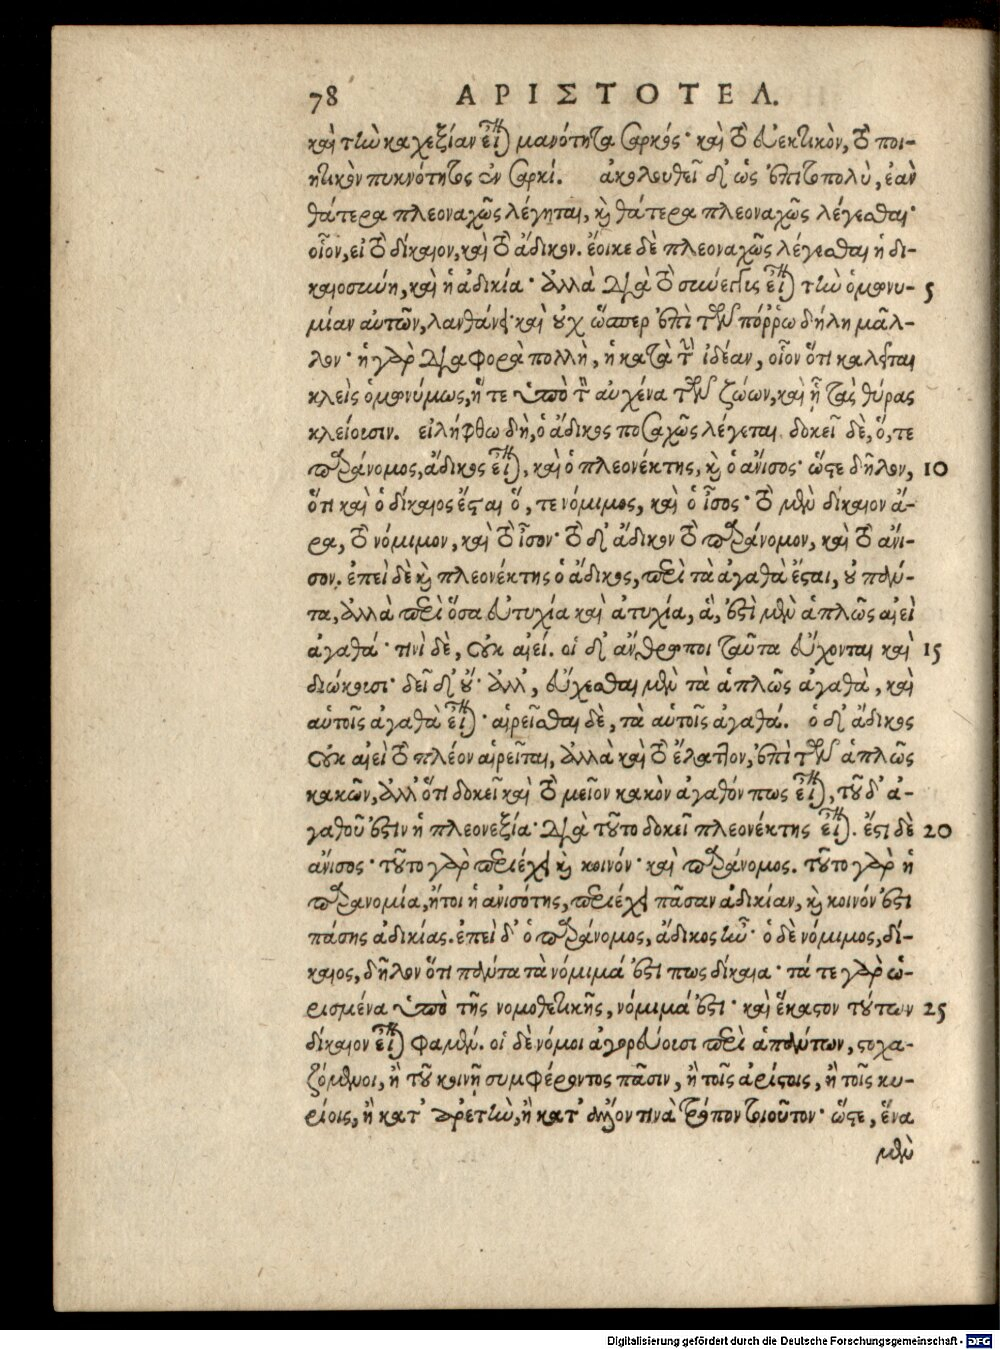 78 ΑΡΙΣΤΟΤΕΛ.
καὶ τὴν καχεξίαν εἶναι μανότητα σαρκός· καὶ τὸ εὐεκτικὸν, τὸ ποι-
ητικὸν πυκνότητος ἐν σαρκί. ἀκολουθεῖ δ' ὡς ἐπιτοπολὺ, ἐὰν
θάτερα πλεοναχῶς λέγηται, καὶ θάτερα πλεοναχῶς λέγεσθαι·
οἷον, εἰ τὸ δίκαιον, καὶ τὸ ἄδικον. ἔοικε δὲ πλεοναχῶς λέγεσθαι ἡ δι-
καιοσύνη, καὶ ἡ ἀδικία· ἀλλὰ διὰ τὸ σύνεγγυς εἶναι τὴν ὁμωνυ- 5
μίαν αὐτῶν, λανθάνει· καὶ οὐχ ὥσπερ ἐπὶ τῶν πόῤῥω δήλη μᾶλ-
λον· ἡ γὰρ διαφορὰ πολλὴ, ἡ κατὰ τὴν ἰδέαν, οἷον ὅτι καλεῖται
κλεὶς ὁμωνύμως, ἥ τε ὑπὸ τὸν αὐχένα τῶν ζώων, καὶ ᾗ τὰς θύρας
κλείουσιν. εἰλήφθω δὴ, ὁ ἄδικος ποσαχῶς λέγεται. δοκεῖ δὲ, ὅ, τε
παράνομος, ἄδικος εἶναι, καὶ ὁ πλεονέκτης, καὶ ὁ ἄνισος· ὥστε δῆλον, 10
ὅτι καὶ ὁ δίκαιος ἔσται ὅ, τε νόμιμος, καὶ ὁ ἴσος· τὸ μὲν δίκαιον ἄ-
ρα, τὸ νόμιμον, καὶ τὸ ἴσον· τὸ δ' ἄδικον τὸ παράνομον, καὶ τὸ ἄνι-
σον. ἐπεὶ δὲ καὶ πλεονέκτης ὁ ἄδικος, περὶ τὰ ἀγαθὰ ἔσται, οὐ πάν-
τα, ἀλλὰ περὶ ὅσα εὐτυχία καὶ ἀτυχία, ἅ, ἐστὶ μὲν ἁπλῶς αἰεὶ
ἀγαθά· τινὶ δὲ, οὐκ αἰεί. οἱ δ' ἄνθρωποι ταῦτα εὔχονται καὶ 15
διώκουσι· δεῖ δ' οὔ· ἀλλ', εὔχεσθαι μὲν τὰ ἁπλῶς ἀγαθὰ, καὶ
αὑτοῖς ἀγαθὰ εἶναι· αἱρεῖσθαι δὲ, τὰ αὑτοῖς ἀγαθά. ὁ δ' ἄδικος
οὐκ αἰεὶ τὸ πλέον αἱρεῖται, ἀλλὰ καὶ τὸ ἔλαττον, ἐπὶ τῶν ἁπλῶς
κακῶν, ἀλλ' ὅτι δοκεῖ καὶ τὸ μεῖον κακὸν ἀγαθόν πως εἶναι, τοῦ δ' ἀ-
γαθοῦ ἐστὶν ἡ πλεονεξία· διὰ τοῦτο δοκεῖ πλεονέκτης εἶναι. ἔστι δὲ 20
ἄνισος· τοῦτο γὰρ περιέχει καὶ κοινόν· καὶ παράνομος. τοῦτο γὰρ ἡ
παρανομία, ἤτοι ἡ ἀνισότης, περιέχει πᾶσαν ἀδικίαν, καὶ κοινόν ἐστι
πάσης ἀδικίας. ἐπεὶ δ' ὁ παράνομος, ἄδικος ἦν· ὁ δὲ νόμιμος, δί-
καιος, δῆλον ὅτι πάντα τὰ νόμιμά ἐστι πως δίκαια· τά τε γὰρ ὡ-
ρισμένα ὑπὸ τῆς νομοθετικῆς, νόμιμά ἐστι· καὶ ἕκαστον τούτων 25
δίκαιον εἶναι φαμέν. οἱ δὲ νόμοι ἀγορεύουσι περὶ ἁπάντων, στοχα-
ζόμενοι, ἢ τοῦ κοινῇ συμφέροντος πᾶσιν, ἢ τοῖς ἀρίστοις, ἢ τοῖς κυ-
ρίοις, ἢ κατ' ἀρετὴν, ἢ κατ' ἄλλον τινὰ τρόπον τοιοῦτον· ὥστε, ἕνα
μὲν
Digitalisierung gefördert durch die Deutsche Forschungsgemeinschaft - DFG